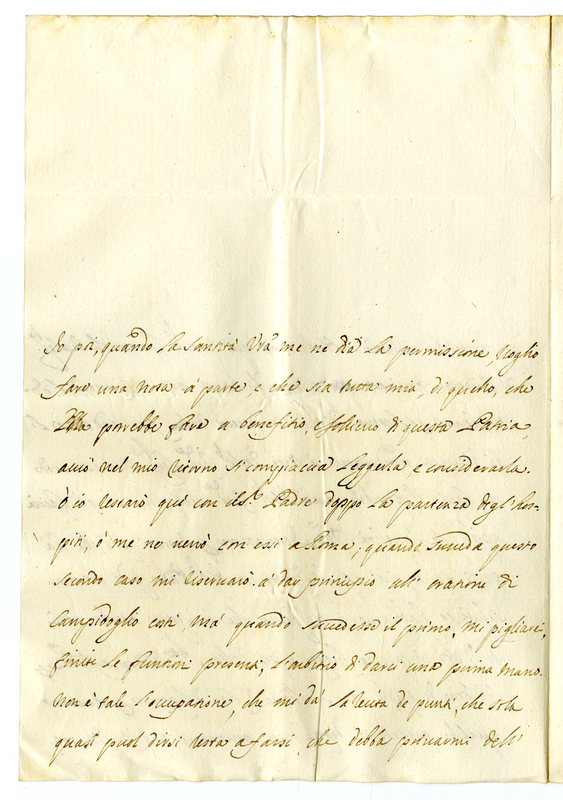 Io poi, quando la Santità Vrã me ne dia la permissione, voglio
fare una nota à parte, e che sia tutta mia, di quello, che
Ella potrebbe fare a benefitio, e sollievo di questa Patria,
acciò nel mio ritorno si compiaccia leggerla, e considerarla.
ò io restarò qui con il Sr. Padre doppo la partenza degl'hos-
piti, ò me ne verrò con essi a Roma; quando succeda questo
secondo caso mi riservarò à dar principio all'oratione di
Campidoglio costì, mà quando succedesse il primo, mi pigliarei,
finite le funtioni presenti, l'arbitrio di darci una prima mano.
Non è tale l'occupatione, che mi dà la de punti, che sola
quasi puol dirsi resta a farsi, che debba privarmi dell'